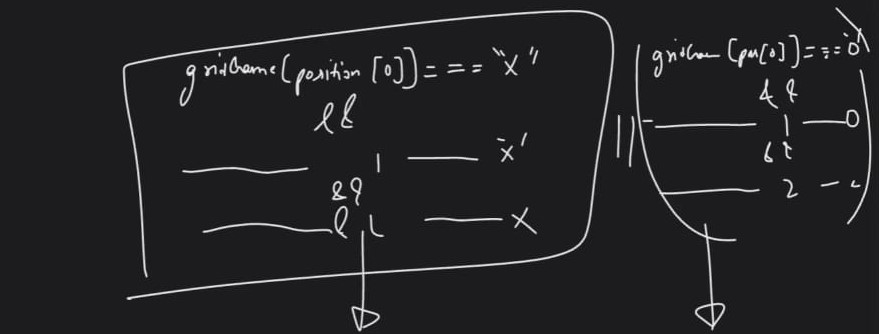 gridGame[position[0]] === "X"
&&
1 X"
&&
X
||
gridGame[pos[0]] === "0"
&&
1 0
&&
2